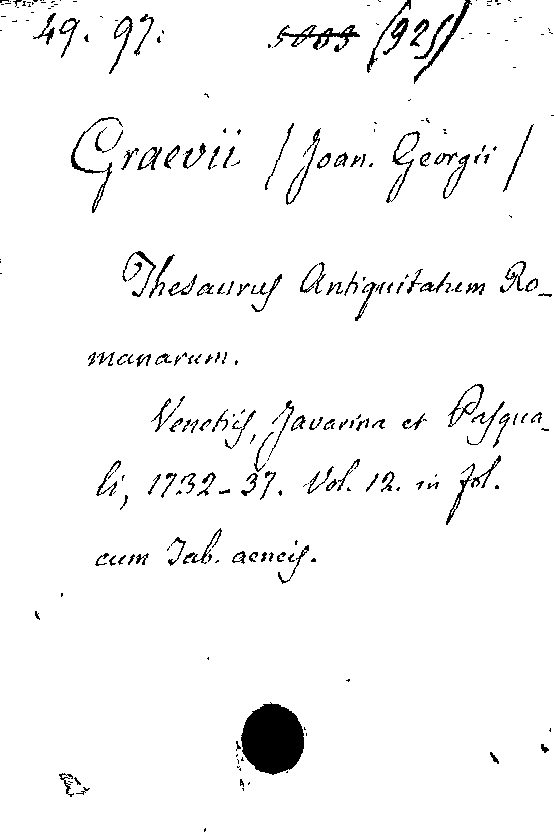 49. 97. 5003 (925)
Graevii / Joan. Georgii /
Thesaurus Antiquitatum Ro-
manarum.
Venetiis, Javarina et Pasqua-
li, 1732-37. Vol. 12. in fol.
cum Tab. aeneis.